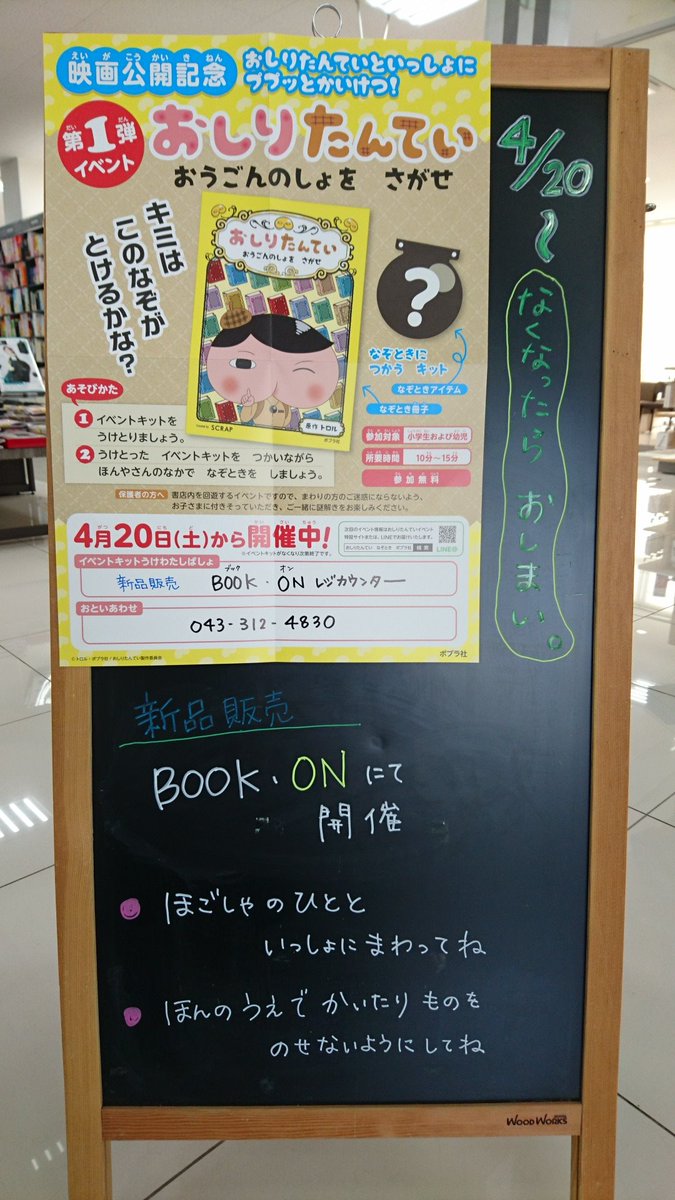 映画公開記念
おしりたんていといっしょに
ププッとかいけつ!
第1弾
イベント
おしりたんてい
おうごんのしょを さがせ
キミは
このなぞが
とけるかな?
おしりたんてい
おうごんのしょを さがせ
SCRAP
原作 トロル
ポプラ社
?
なぞときに
つかう キット
なぞときアイテム
なぞとき冊子
あそびかた
1 イベントキットを
うけとりましょう。
2 うけとった イベントキットを つかいながら
ほんやさんのなかで なぞときを しましょう。
参加対象 小学生および幼児
所要時間 10分~15分
参加無料
保護者の方へ 書店内を回遊するイベントですので、まわりの方のご迷惑にならないよう、
お子さまに付きそっていただき、ご一緒に謎解きをお楽しみください。
4月20日(土)から開催中!
※イベントキットがなくなり次第終了です。
次回のイベント情報はおしりたんていイベント
特設サイトまたは、LINEでお届けいたします。
おしりたんてい なぞとき ポプラ社 検索 LINE@
イベントキットうけわたしばしょ
新品販売 BOOK・ON レジカウンター
ブック オン
おといあわせ
043-312-4830
©トロル・ポプラ社/おしりたんてい製作委員会
ポプラ社
4/20~
なくなったら おしまい。
新品販売
BOOK・ONにて
開催
ほごしゃのひとと
いっしょにまわってね
ほんのうえで かいたり ものを
のせないようにしてね
WOODWORKS